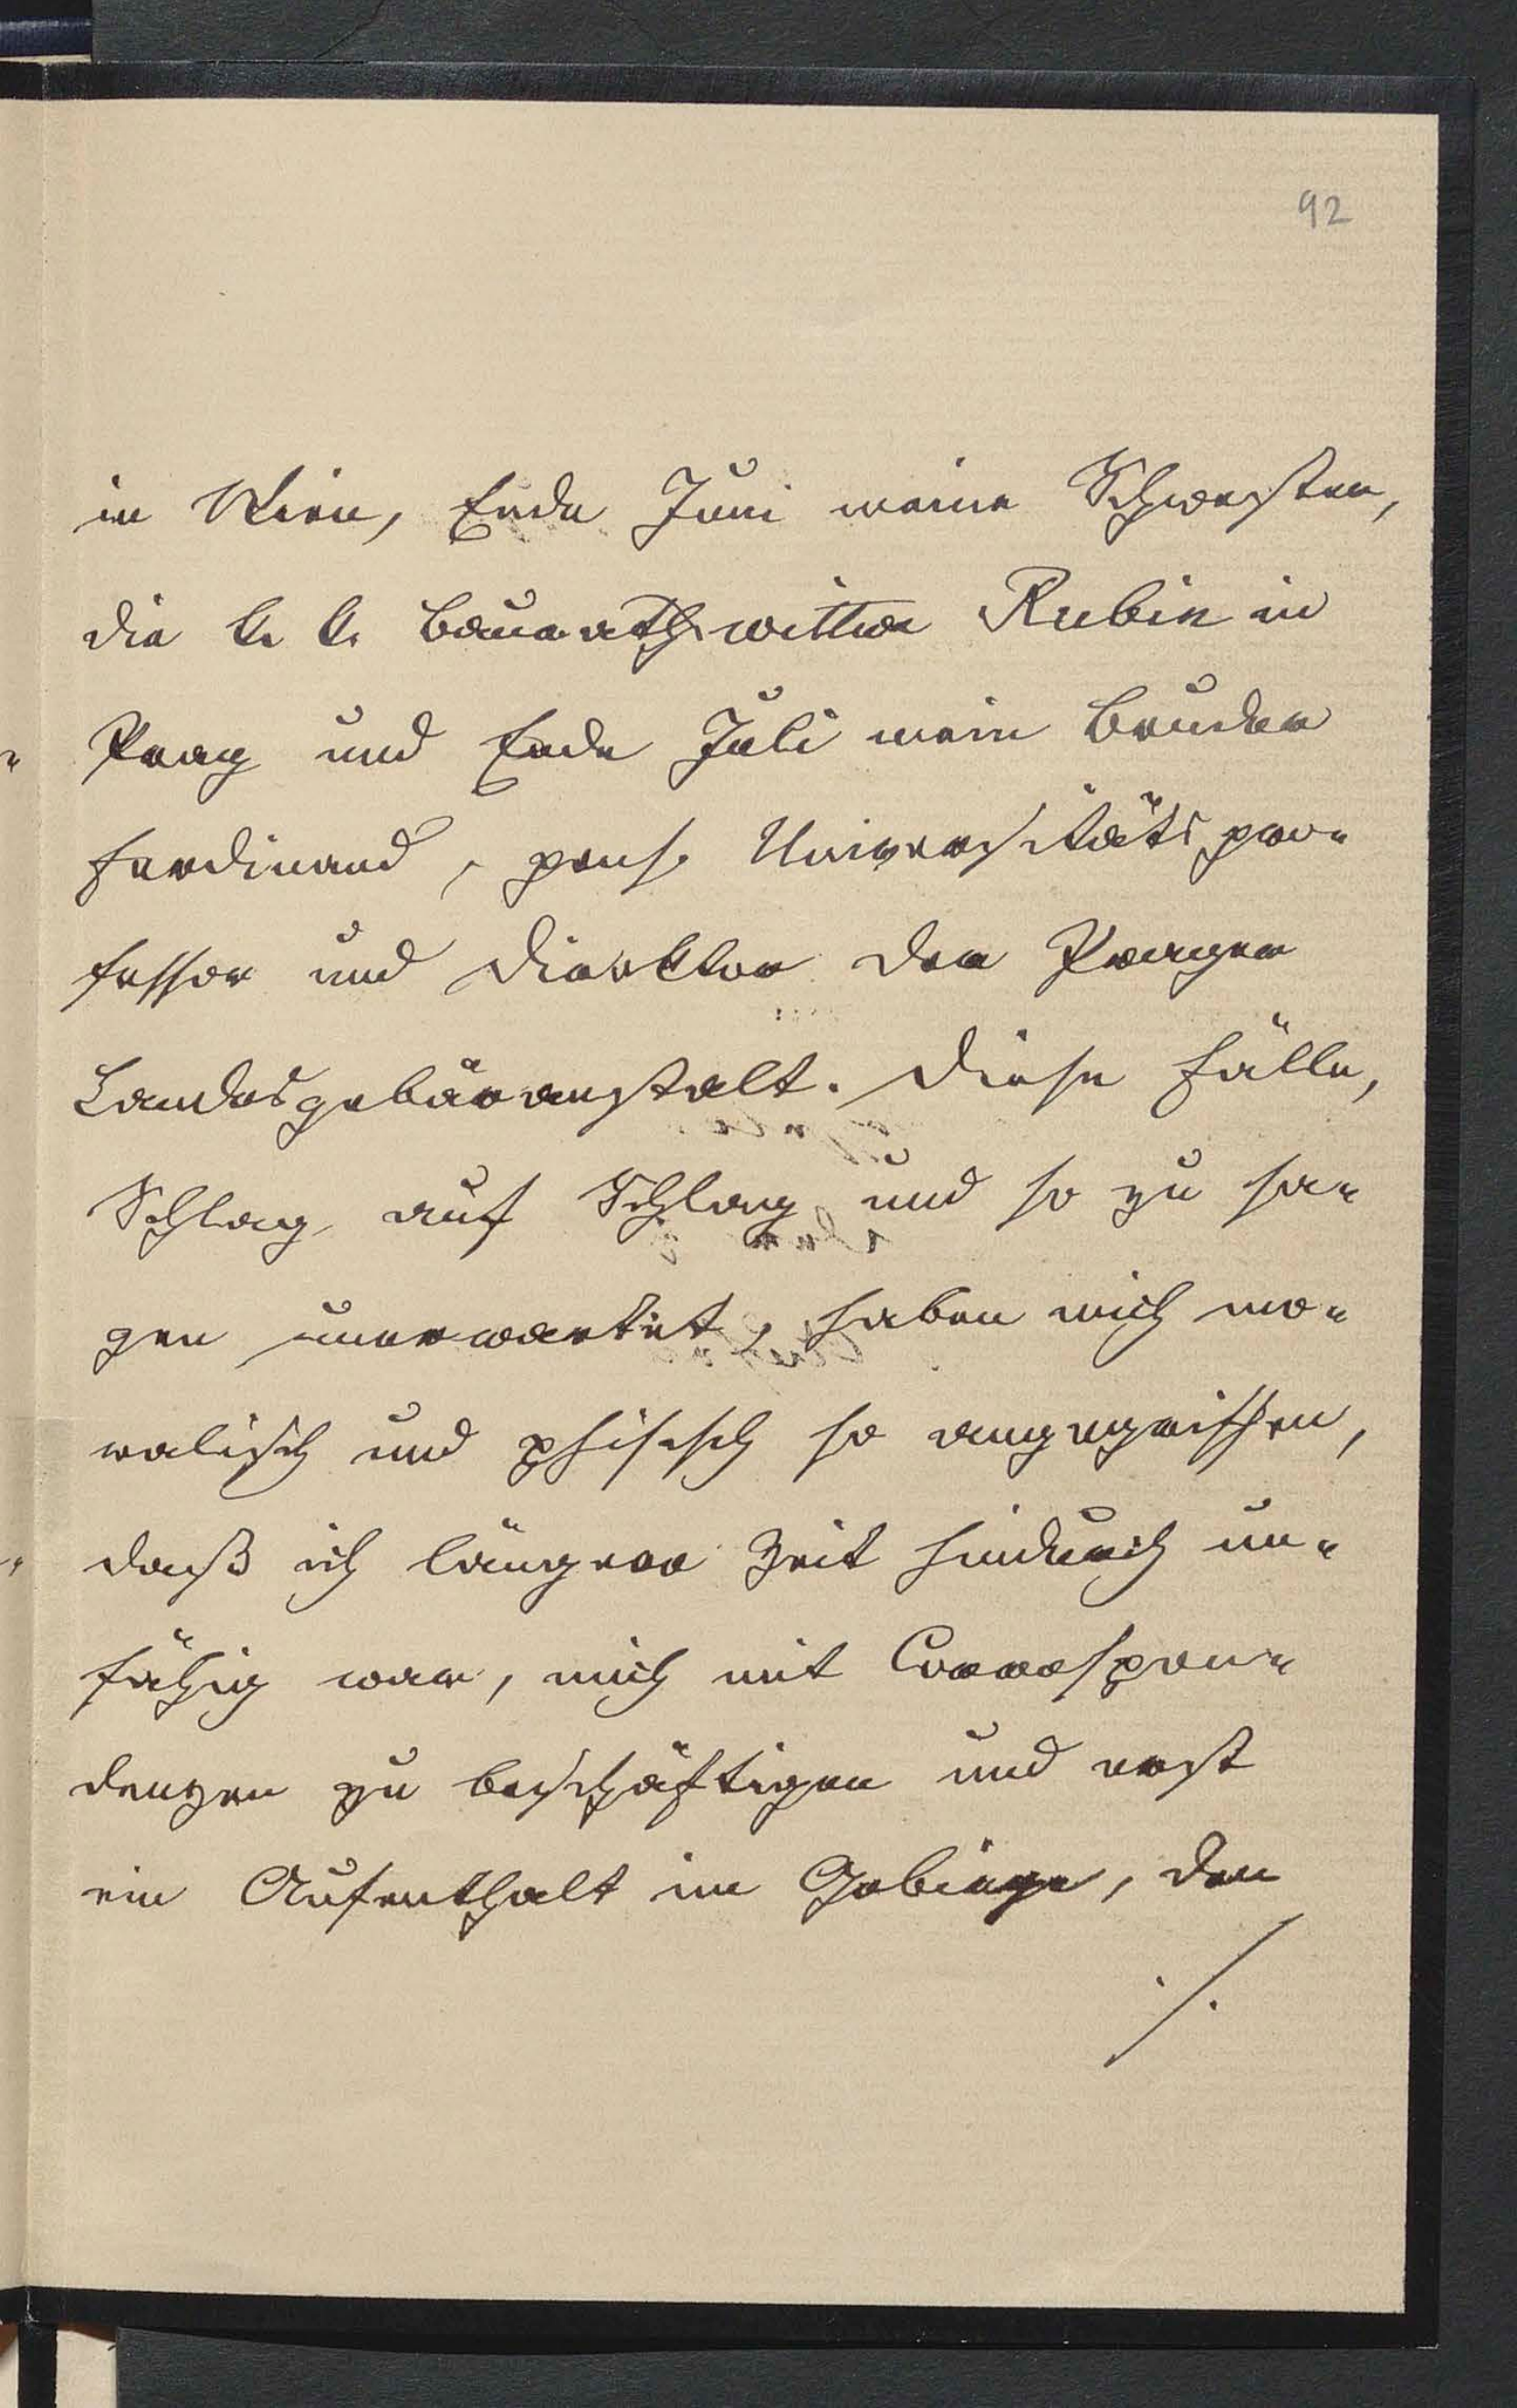 92
in Wien, Ende Juni meine Schwester,
die k. k. Baurathswittwe Rubin in
Prag und Ende Juli mein Bruder
Ferdinand, pens. Universitätspro-
fessor und Direktor der Prager
Landesgebäranstalt. Diese Fälle,
Schlag auf Schlag und so zu sa-
gen unerwartet, haben mich mo-
ralisch und phisisch so angegriffen,
daß ich längere Zeit hindurch un-
fähig war, mich mit Correspon-
denzen zu beschäftigen und erst
ein Aufenthalt im Gebirge, den
./.